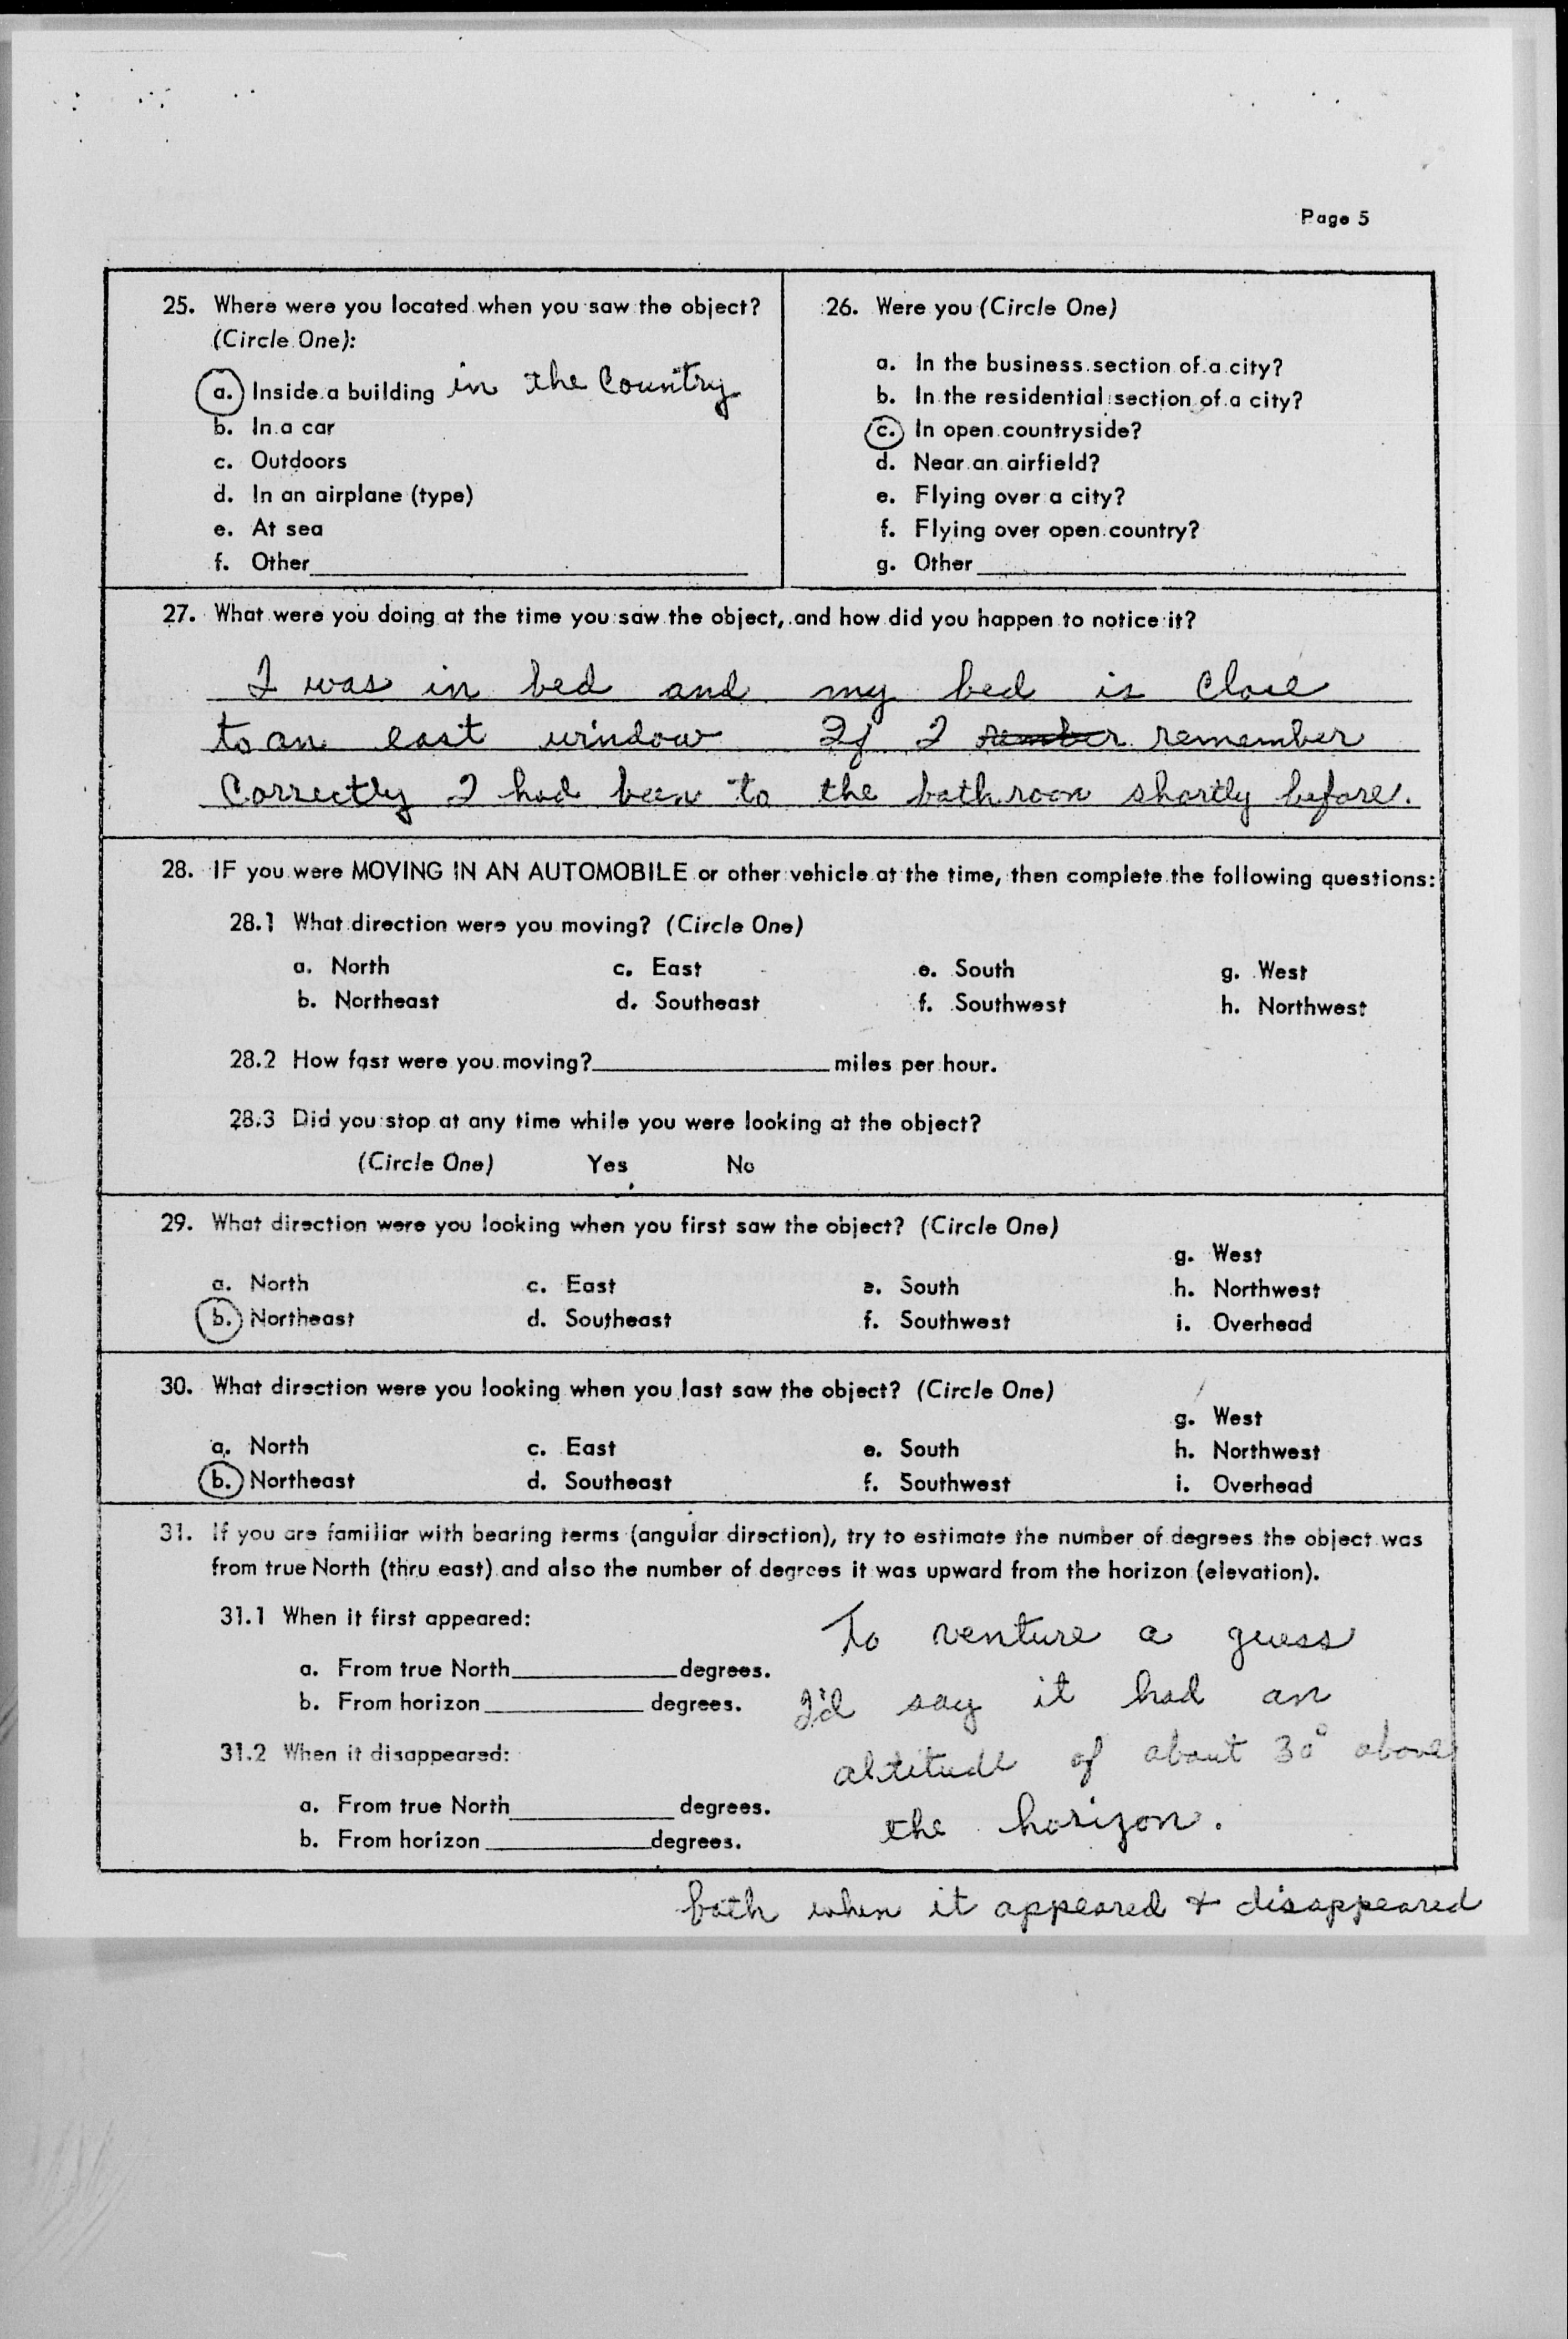 Page 5
25. Where were you located when you saw the object?
(Circle One):
a. Inside a building in the Country
b. In a car
c. Outdoors
d. In an airplane (type)
e. At sea
f. Other
26. Were you (Circle One)
a. In the business section of a city?
b. In the residential section of a city?
c. In open countryside?
d. Near an airfield?
e. Flying over a city?
f. Flying over open country?
g. Other
27. What were you doing at the time you saw the object, and how did you happen to notice it?
I was in bed and my bed is close
to an east window If I remember
Correctly I had been to the bathroom shortly before.
28. IF you were MOVING IN AN AUTOMOBILE or other vehicle at the time, then complete the following questions:
28.1 What direction were you moving? (Circle One)
a. North c. East e. South g. West
b. Northeast d. Southeast f. Southwest h. Northwest
28.2 How fast were you moving? miles per hour.
28.3 Did you stop at any time while you were looking at the object?
(Circle One) Yes No
29. What direction were you looking when you first saw the object? (Circle One)
g. West
a. North c. East e. South h. Northwest
b. Northeast d. Southeast f. Southwest i. Overhead
30. What direction were you looking when you last saw the object? (Circle One)
g. West
a. North c. East e. South h. Northwest
b. Northeast d. Southeast f. Southwest i. Overhead
31. If you are familiar with bearing terms (angular direction), try to estimate the number of degrees the object was
from true North (thru east) and also the number of degrees it was upward from the horizon (elevation).
31.1 When it first appeared:
a. From true North degrees.
b. From horizon degrees.
31.2 When it disappeared:
a. From true North degrees.
b. From horizon degrees.
To venture a guess
I'd say it had an
altitude of about 30° above
the horizon.
both when it appeared + disappeared